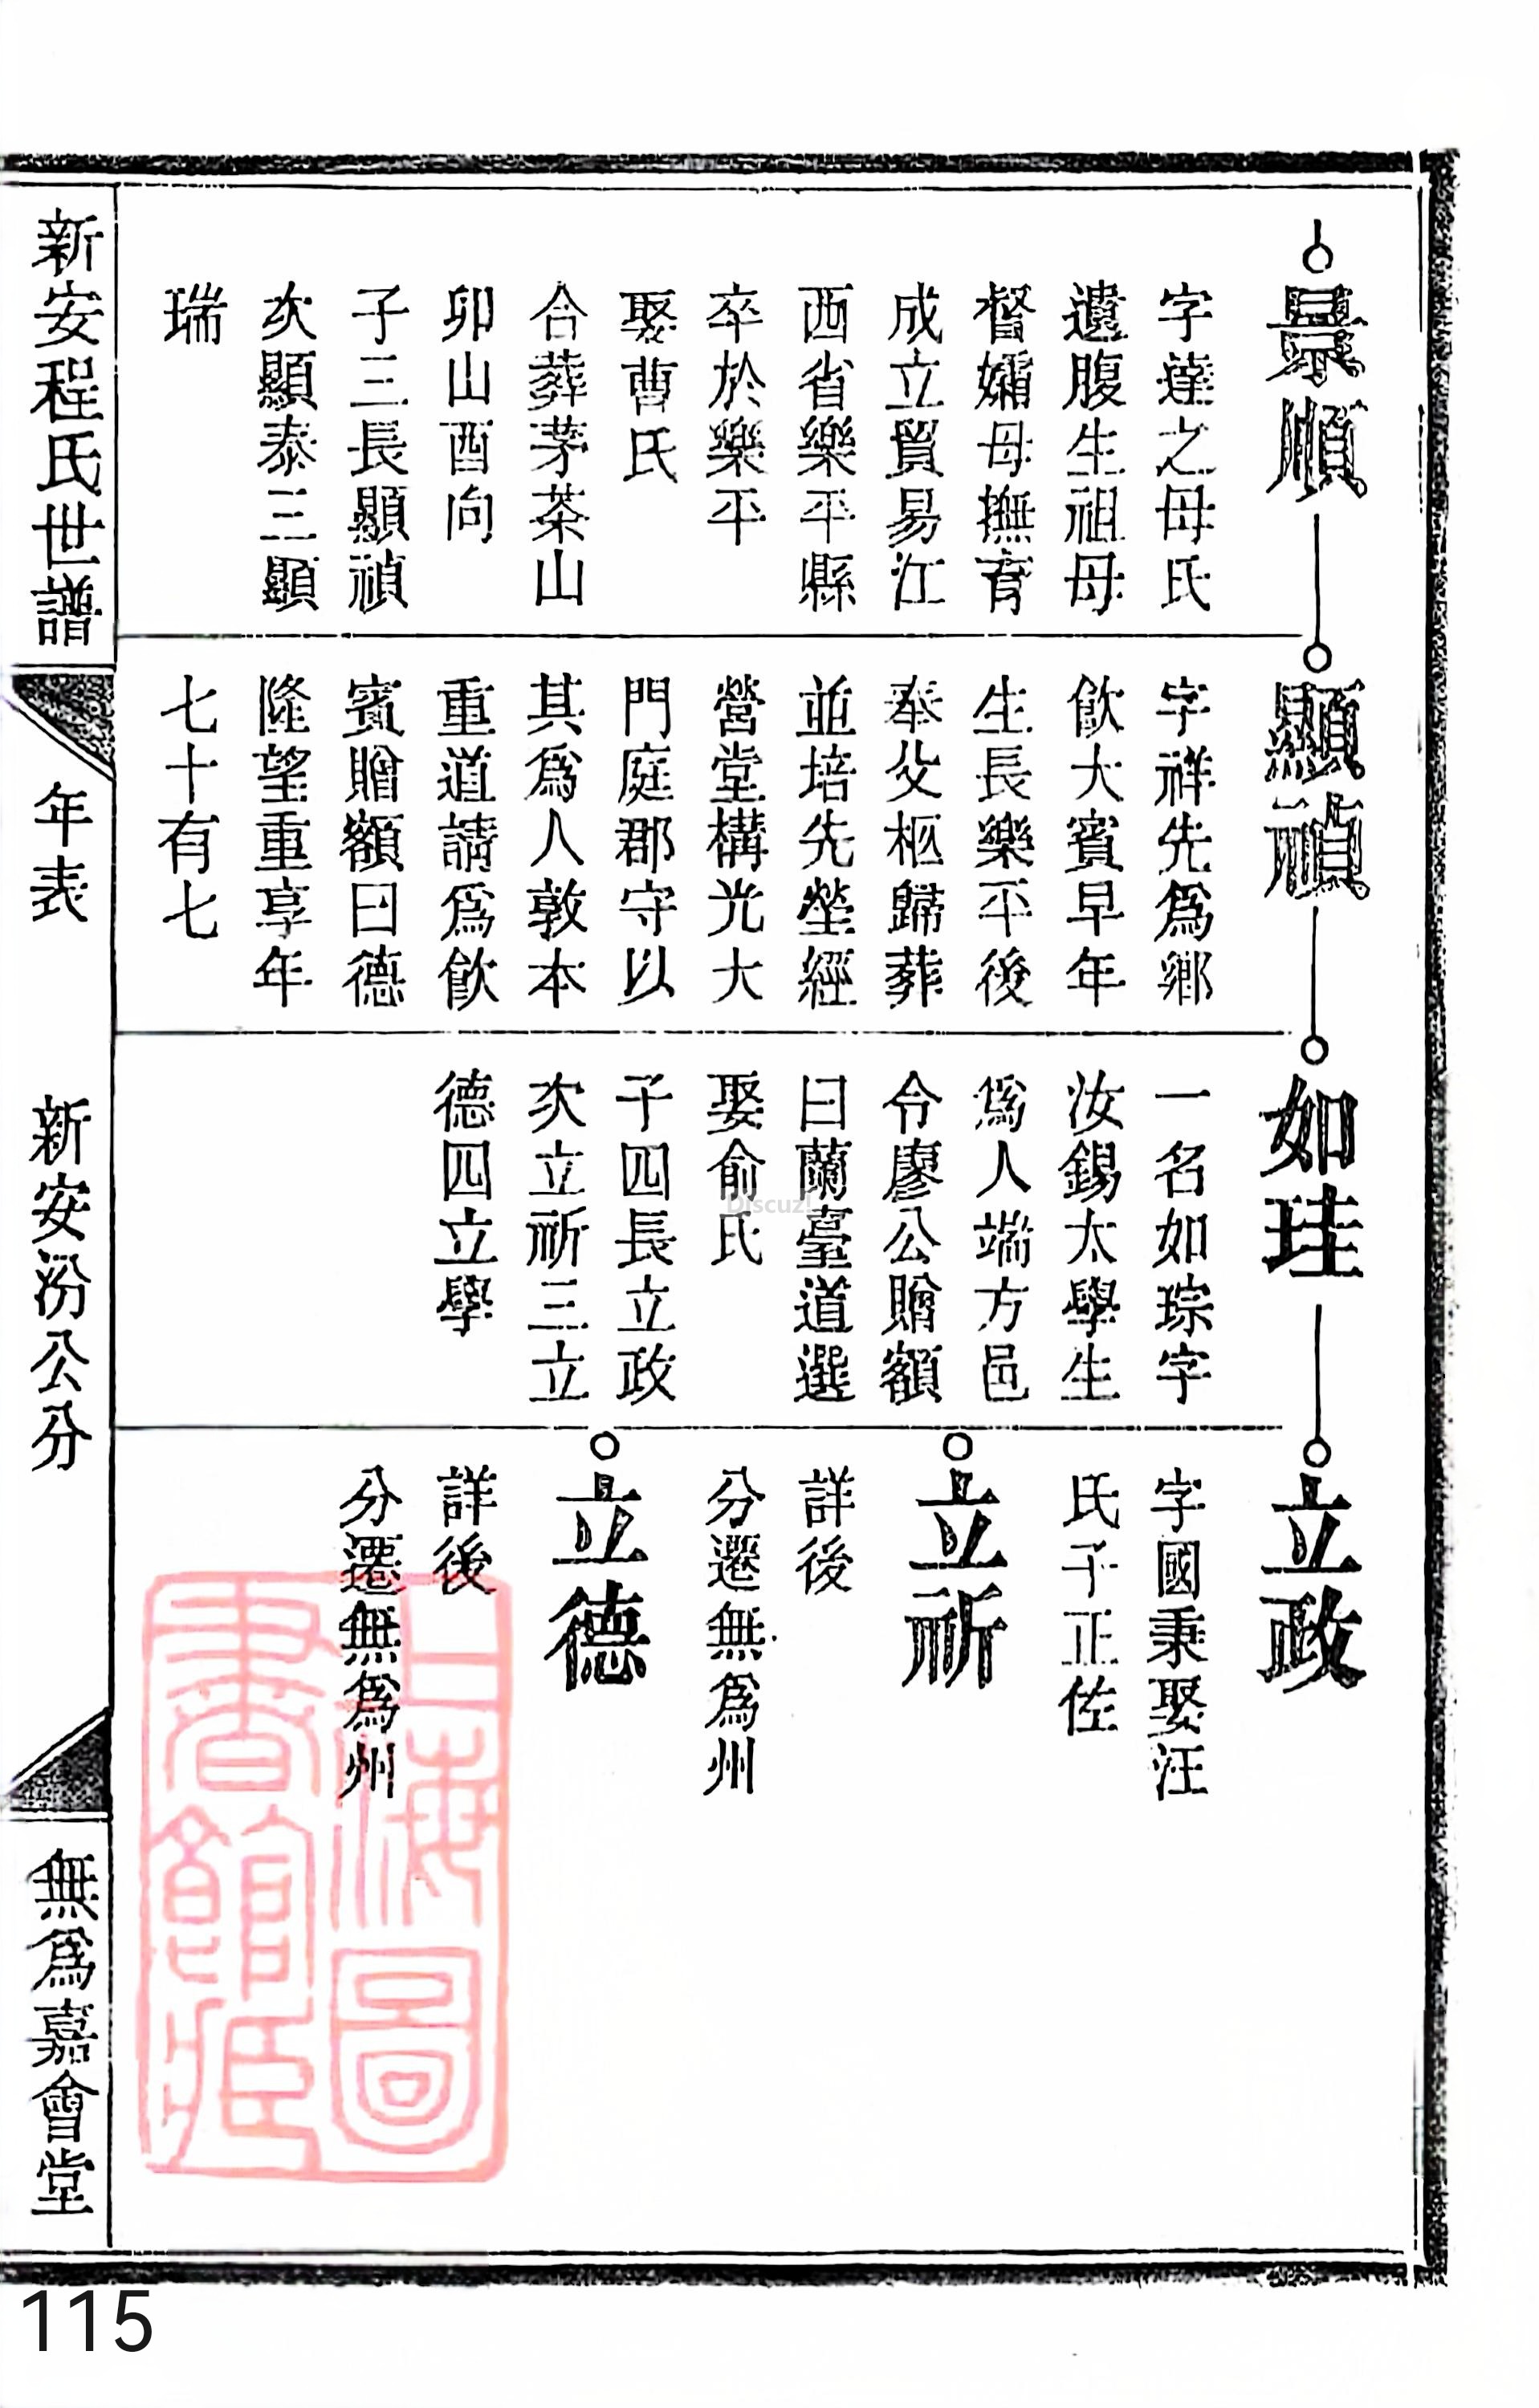 景順
字達之母氏
遺腹生祖母
督孀母撫育
成立貿易江
西省樂平縣
卒於樂平
娶曹氏
合葬茅茶山
卯山酉向
子三長顯禎
次顯泰三顯
瑞
顯禎
字祥先爲鄉
飲大賓早年
生長樂平後
奉父柩歸葬
並培先塋經
營堂構光大
門庭郡守以
其爲人敦本
重道請爲飲
賓贈額曰德
隆望重享年
七十有七
如珪
一名如琮字
汝錫太學生
爲人端方邑
令廖公贈額
曰蘭臺道選
娶俞氏
子四長立政
次立祈三立
德四立學
立政
字國秉娶汪
氏子正佐
立祈
詳後
分遷無爲州
立德
詳後
分遷無爲州
新安程氏世譜
年表
新安汾公分
無爲嘉會堂
上海圖
書館藏
Discuz!
115